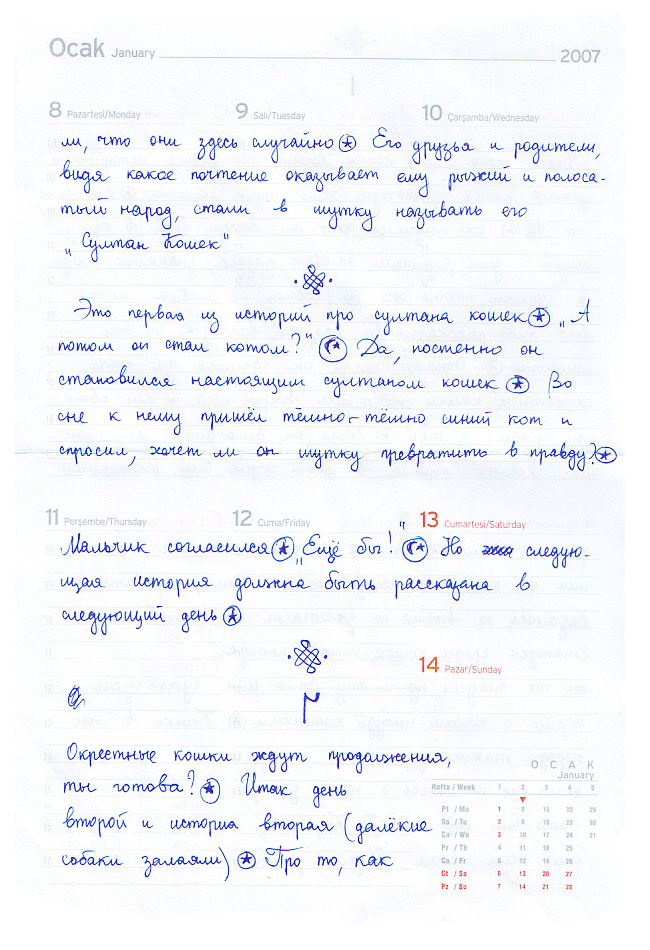 Ocak January 2007
8 Pazartesi/Monday 9 Salı/Tuesday 10 Çarşamba/Wednesday
ли, что они здесь случайно Его друзья и родители,
видя какое почтение оказывает ему рыжий и полоса-
тый народ, стали в шутку называть его
„Султан Кошек"
Это первая из историй про султана кошек „А
потом он стал котом?" Да, постенно он
становился настоящим султаном кошек Во
сне к нему пришёл тёмно-тёмно синий кот и
спросил, хочет ли он шутку превратить в правду?
11 Perşembe/Thursday 12 Cuma/Friday 13 Cumartesi/Saturday
Мальчик согласился „Ещё бы!" Но следую-
щая история должна быть рассказана в
следующий день
14 Pazar/Sunday
Окрестные кошки ждут продолжения,
ты готова? Итак день
второй и история вторая (далёкие
собаки залаяли) Про то, как
O C A K
January
Hafta / Week 1 2 3 4 5
Pt / Mo 1 8 15 22 29
Sa / Tu 2 9 16 23 30
Ça / We 3 10 17 24 31
Pr / Th 4 11 18 25
Cu / Fr 5 12 19 26
Ct / Sa 6 13 20 27
Pz / Su 7 14 21 28